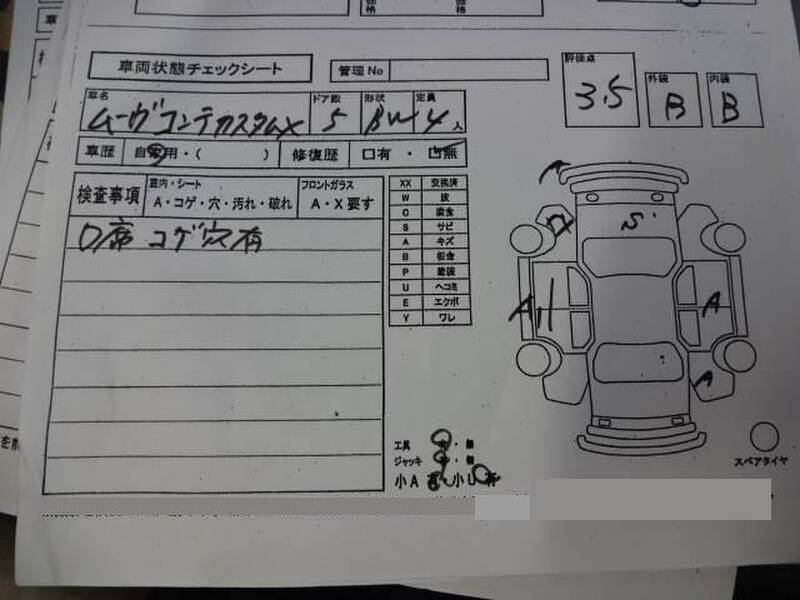 車両状態チェックシート
管理No
評価点
3.5
外装
B
内装
B
車名
ムーヴコンテカスタムX
ドア数
5
形状
BW
定員
4人
車歴
自家用・( )
修復歴
口有・口無
検査事項
室内・シート
A・コゲ・穴・汚れ・破れ
フロントガラス
A・X要す
D席 コゲ穴有
XX 交換済
W 波
C 腐食
S サビ
A キズ
B 板金
P 塗装
U ヘコミ
E エクボ
Y ワレ
S
A
A
A
工具 有・無
ジャッキ 有・無
小A 有・小U 有
スペアタイヤ